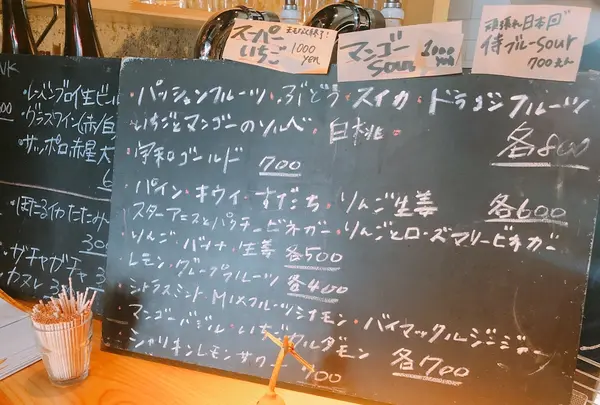 スーパー
いちご
1000
yen
マンゴー
sour
1000
yen
頑張れ日本🏻
侍ブルーsour
700えん
・パッションフルーツ・ぶどう・スイカ・ドラゴンフルーツ
・いちごとマンゴーのソルベ・白桃・
各800
・宇和ゴールド
700
・パイン・キウイ・すだち・りんご生姜
各600
・スターアニスとパクチービネガー・りんごとローズマリービネガー
・りんご・バナナ・生姜 各500
・レモン・グレープフルーツ 各400
・シトラスミント・MIXフルーツシナモン・バイマックルジンジャー
・マンゴーバジル・いちごカルダモン 各700
・シャリキンレモンサワー 700
・レーベンブロイ生ビール
・グラスワイン(赤/白
・サッポロ赤星 大
・ほたるイカたたみ
・ガチャガチャ